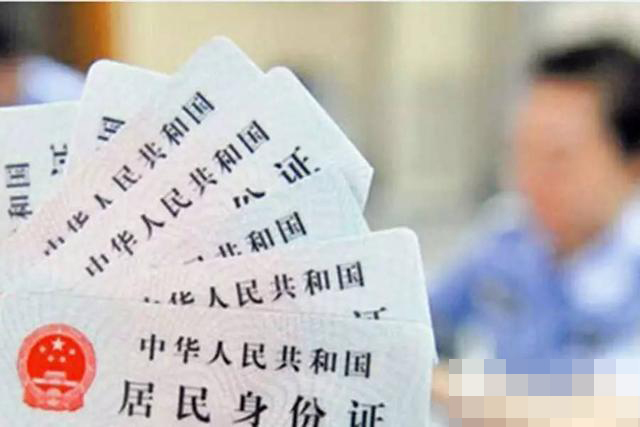 证
中华人民共和国
中华人民共和国
份证
中华人民共和国
中华人民共和国
证
中华人民共和国
居民身份证